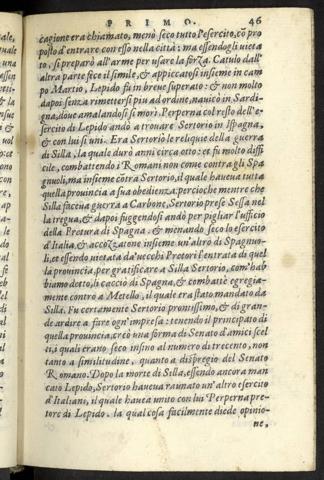 PRIMO. 46
cagione era chiamato, menò seco tutto l'esercito, cō pro
posto d'entrare con esso nella città: ma essendogli vieta
to, si preparò all'arme per usare la forza. Catulo dall'
altra parte fece il simile, & appiccatosi insieme in cam
po Martio, Lepido fu in breve superato: & non molto
dapoi senza rimettersi piu ad ordine, navicò in Sardi-
gna, dove amalandosi si morì. Perperna col resto dell'e-
sercito di Lepido andò a trovare Sertorio in Ispagna,
& con lui si unì. Era Sertorio le reliquie della guerra
di Silla, la quale durò anni circa otto: et fu molto diffi
cile, combattendo i Romani non come contra gli Spa
gnuoli, ma insieme cōtra Sertorio, il quale haveva tutta
quella provincia a sua obedienza: percioche mentre che
Silla faceva guerra a Carbone, Sertorio prese Sessa nel
la tregua, & dapoi fuggendosi andò per pigliar l'ufficio
della Pretura di Spagna: & menando seco lo esercito
d'Italia, & accozzatone insieme un'altro di Spagnuo-
li, et essendo vietata da' vecchi Pretori l'entrata di quel
la provincia, per gratificare a Silla, Sertorio, com'hab
biamo detto, li cacciò di Spagna, & combattè egregia-
mente contro a Metello, il quale era stato mandato da
Silla. Fu certamente Sertorio prontissimo, & di gran-
de ardire a fare ogn'impresa: tenendo il principato di
quella provincia, creò una forma di Senato d'amici scel
ti, i quali erano seco insino al numero di trecento, non
tanto a similitudine, quanto a dispregio del Senato
Romano. Dopo la morte di Silla, essendo ancora man
cato Lepido, Sertorio haveva raunato un'altro esercito
d'Italiani, il quale haveva unito con lui Perperna pre-
tore di Lepido. la qual cosa facilmente diede opinio-
ne,